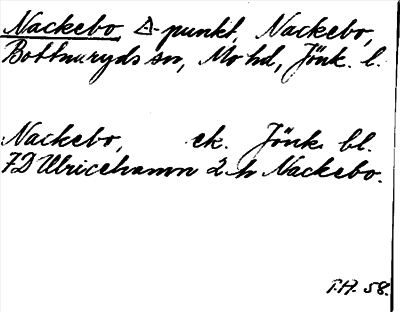 Nackebo △-punkt, Nackebo,
Bottnaryds sn, Mo hd, Jönk. l.
Nackebo, ek. Jönk. bl.
7D Ulricehamn 2 h Nackebo.
T.H. 58.